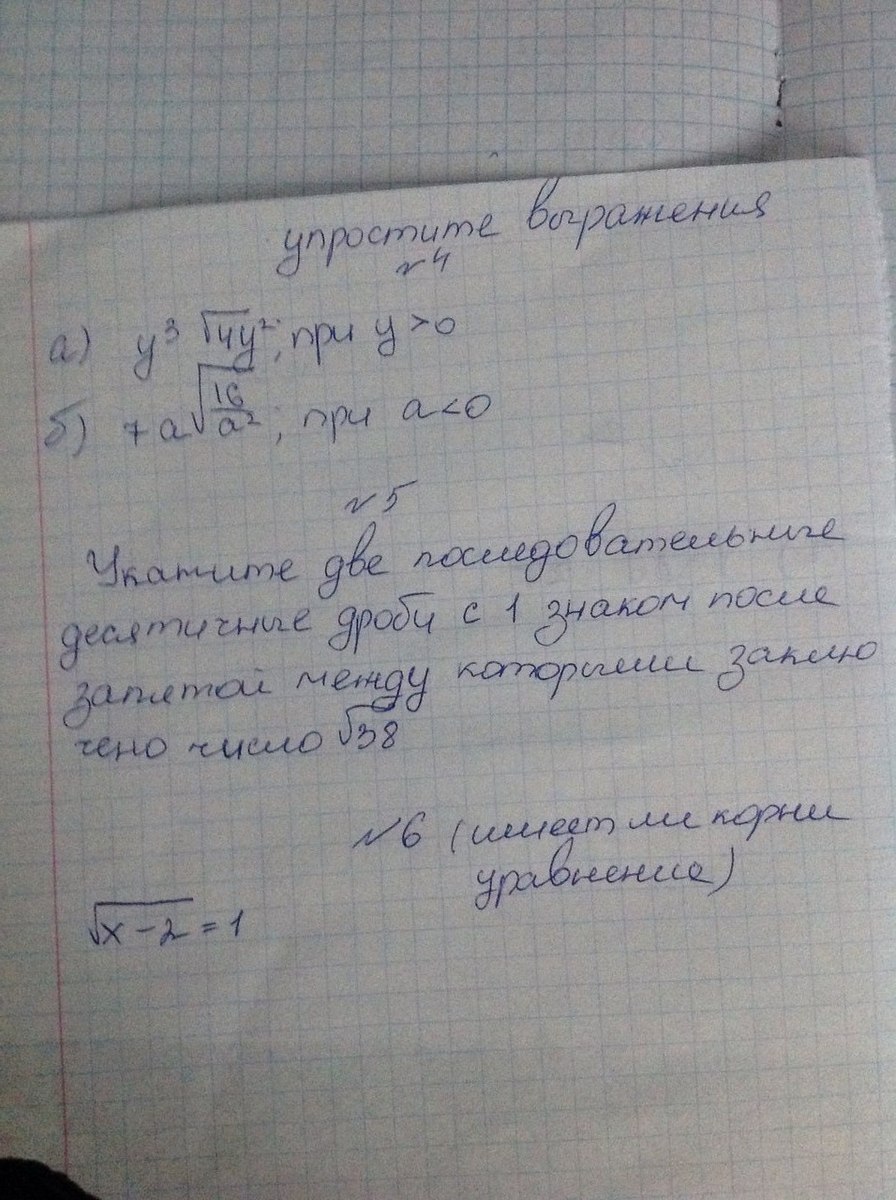 упростите выражения
№4
а) y³ √4y²; при y>0
б) 7a√16/a²; при a<0
№5
Укажите две последовательные
десятичные дроби с 1 знаком после
запятой между которыми заклю
чено число √38
№6 (имеет ли корни
уравнение)
√x-2 = 1